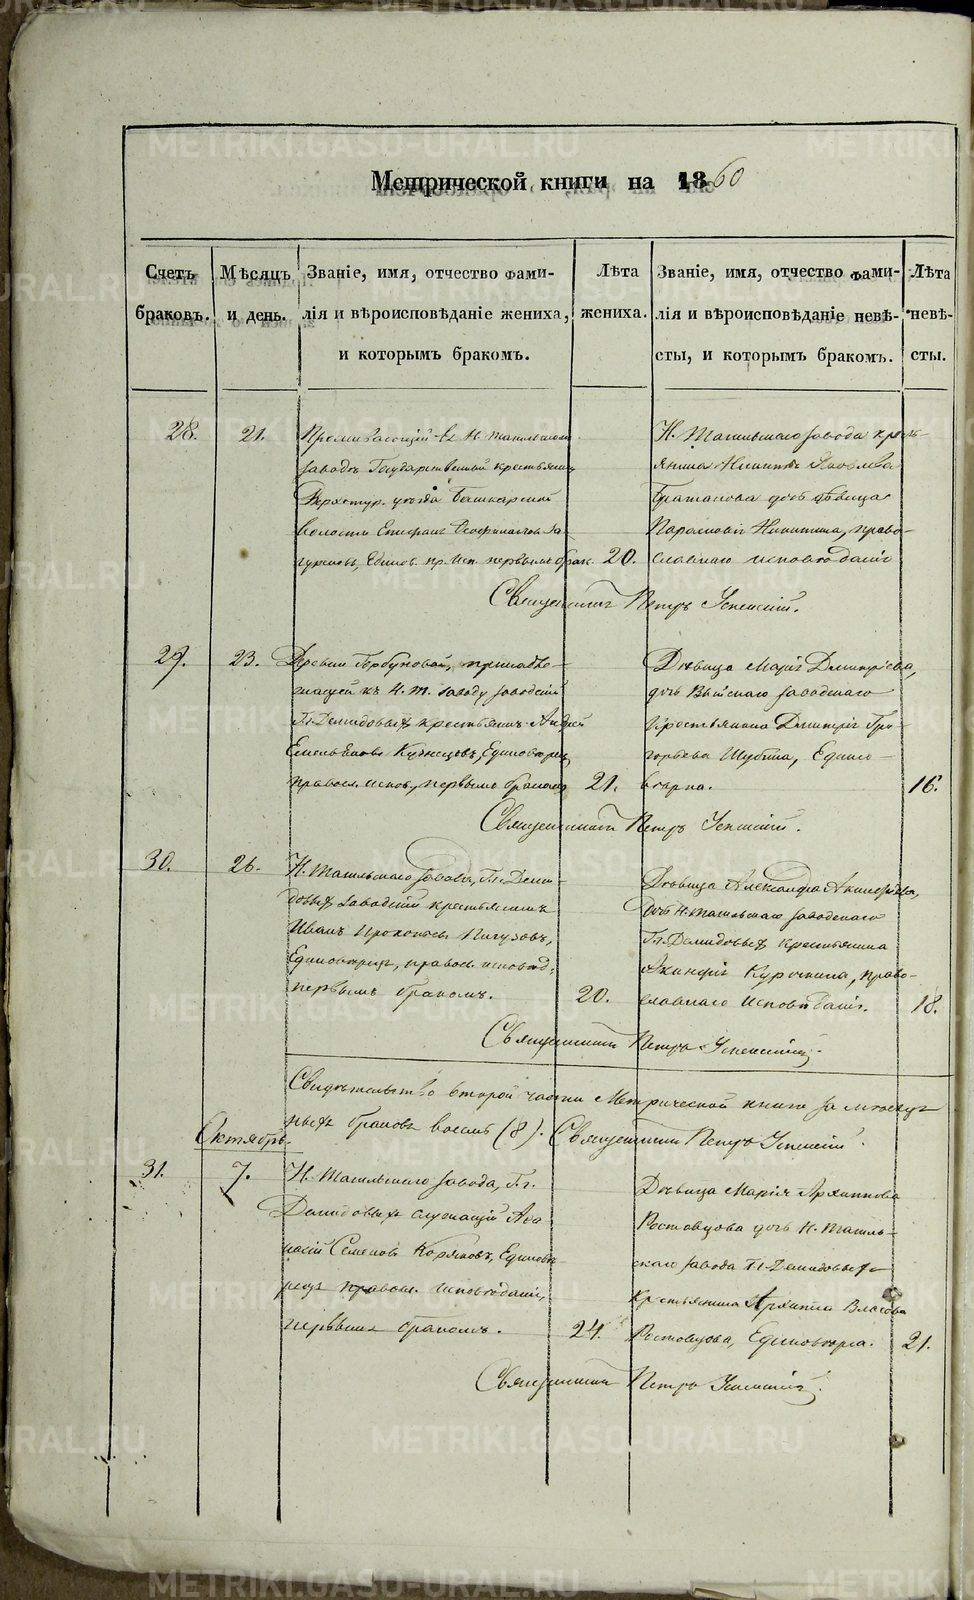 Метрической книги на 1860
Счетъ браковъ.
Мѣсяцъ и день.
Званіе, имя, отчество фами-
лія и вѣроисповѣданіе жениха,
и которымъ бракомъ.
Лѣта жениха.
Званіе, имя, отчество фами-
лія и вѣроисповѣданіе невѣ-
сты, и которымъ бракомъ.
Лѣта невѣ-
сты.
28.
21.
Проживающій въ Н. Тагильскомъ
заводѣ Государственный крестьянинъ
Верхотур. уѣзда Башкарской
волости
первымъ брак.
20.
Н. Тагильскаго завода кресть-
янина Никиты Яковлева
дочь дѣвица
Парасковія Никитина, право-
славнаго исповѣданія
Священникъ Петръ Успенскій.
29.
23.
Деревни Горбуновой, принадле-
жащей къ Н. Т. заводу заводскій
Гг. Демидовыхъ крестьянинъ Андрей
Емельяновъ Кузнецовъ, Единовѣрец,
правосл. испов., первымъ бракомъ
21.
Дѣвица Марія Дмитріева,
дочь Выйскаго заводскаго
крестьянина Дмитрія Гри-
горьева Шубина, Едино-
вѣрка.
16.
Священникъ Петръ Успенскій.
30.
26.
Н. Тагильскаго завода, Гг. Деми-
довыхъ заводскій крестьянинъ
Иванъ Прокопьевъ Пичузовъ,
Единовѣрецъ, правосл. исповѣд.
первымъ бракомъ.
20.
Дѣвица Александра Акинфіева,
дочь Н. Тагильскаго заводскаго
Гг. Демидовыхъ крестьянина
Акинфія Курочкина, право-
славнаго исповѣданія.
18.
Священникъ Петръ Успенскій.
второй части Метрической книги за
браковъ восемь (8). Священникъ Петръ Успенскій.
Октябрь.
31.
7.
Н. Тагильскаго завода, Гг.
Демидовыхъ служащій Афа-
насій Семеновъ Коряковъ, Единовѣ-
рецъ правосл. исповѣданія,
первымъ бракомъ.
24.
Дѣвица Марія Архиппова
Ростовцова дочь Н. Тагиль-
скаго завода Гг. Демидовыхъ
крестьянина Архиппа Власова
Ростовцова, Единовѣрка.
21.
Священникъ Петръ Успенскій.
METRIKI.GASO-URAL.RU